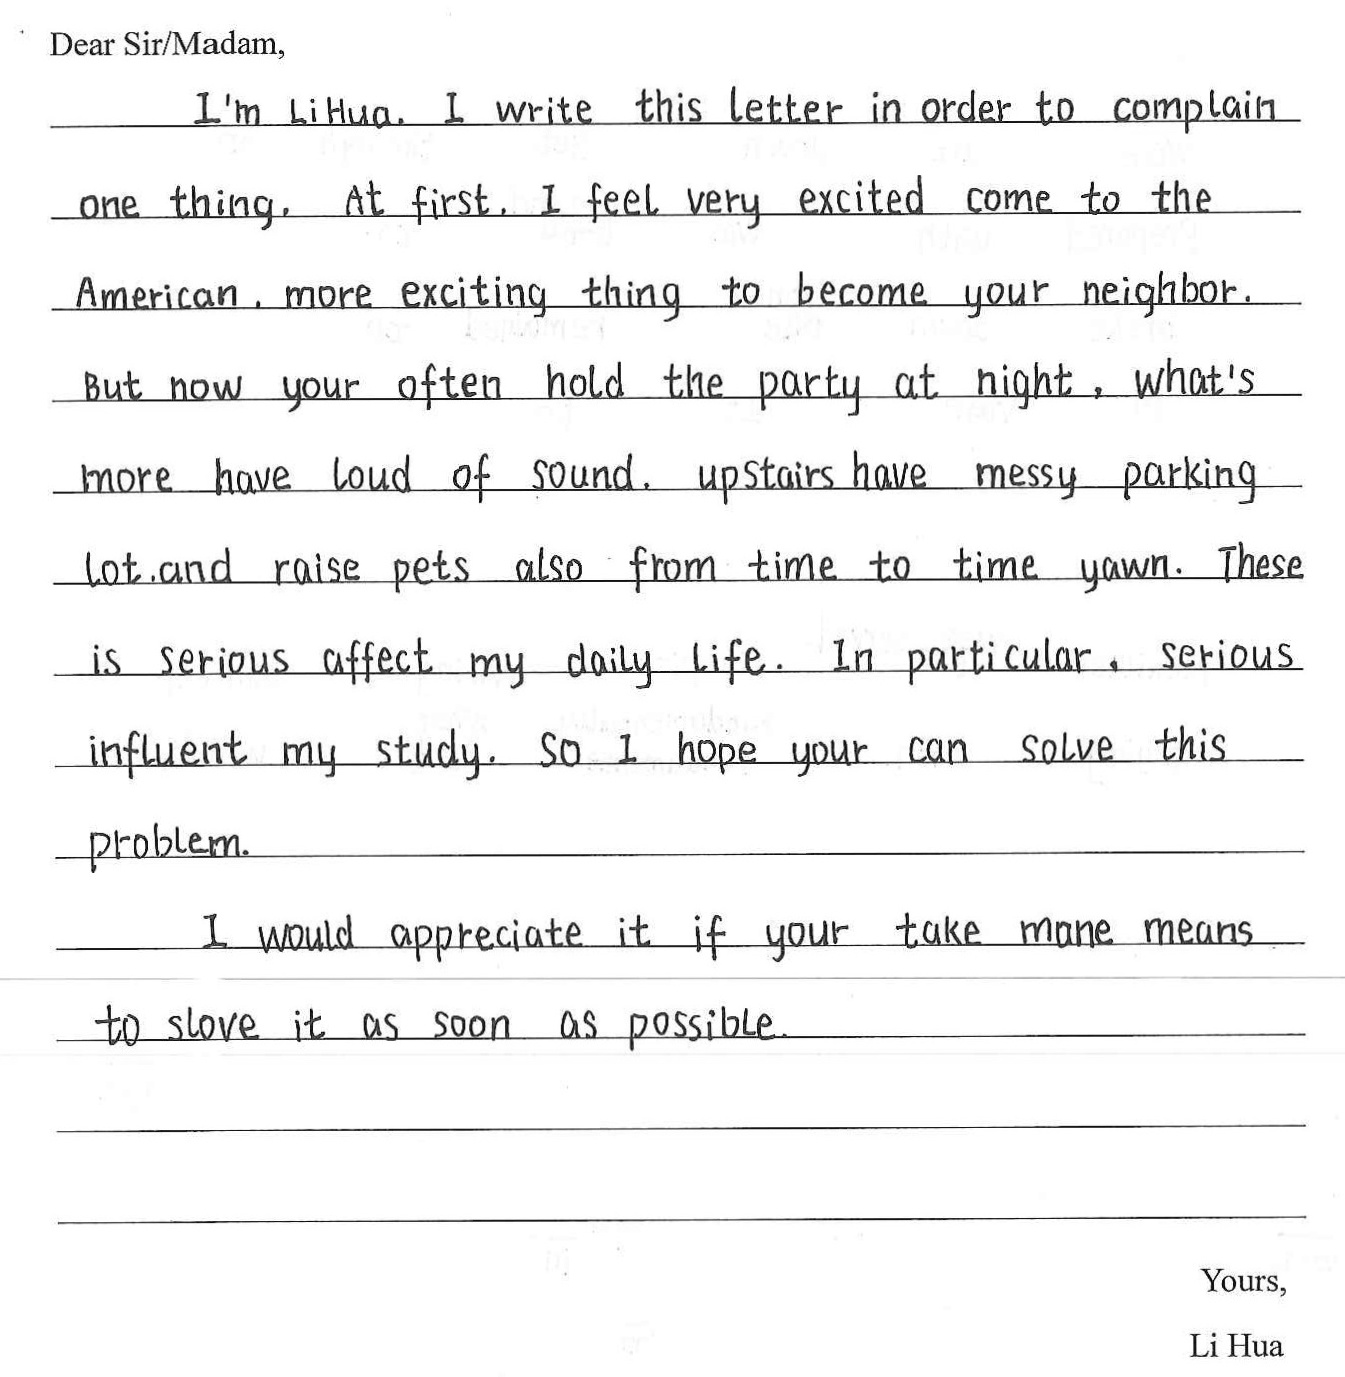 Dear Sir/Madam,
I'm Li Hua. I write this letter in order to complain
one thing. At first. I feel very excited come to the
American. more exciting thing to become your neighbor.
But now your often hold the party at night, what's
more have loud of sound. upstairs have messy parking
lot.and raise pets also from time to time yawn. These
is serious affect my daily life. In particular, serious
influent my study. So I hope your can solve this
problem.
I would appreciate it if your take mane means
to slove it as soon as possible.
Yours,
Li Hua